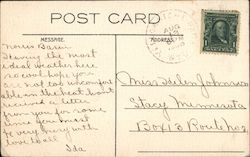 POST CARD
MESSAGE.
ADDRESS.
AUG
Having the most
ideal weather here
so cool hope you
are not too
the heat have
received a letter
from you for some
time you must
be very busy with
love to all
Ida
Miss Helen Johnson
Stacy Minnesota
Box 13 Route no 2